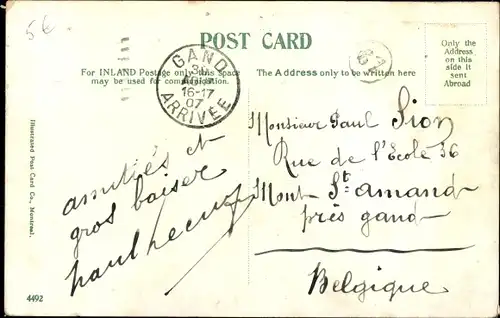 5 €
POST CARD
For INLAND Postage only this space
may be used for communication.
The Address only to be written here
Only the
Address on
this side it
sent
Abroad
GAND
3
16-17
07
ARRIVÉE
amitiés et
gros baiser
Monsieur Paul Sion
Rue de l'Ecole 36
Mont St amand
près gand
Belgique
Illustrated Post Card Co., Montreal.
4492